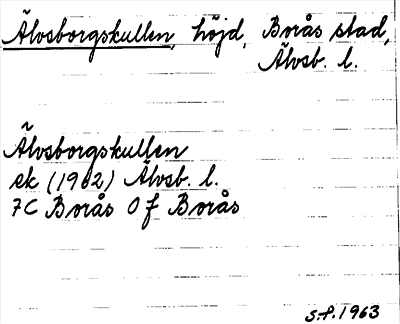 Älvsborgskullen, höjd, Borås stad,
Älvsb. l.
Älvsborgskullen
ek (1962) Älvsb. l.
7C Borås 0f Borås
S.P. 1963